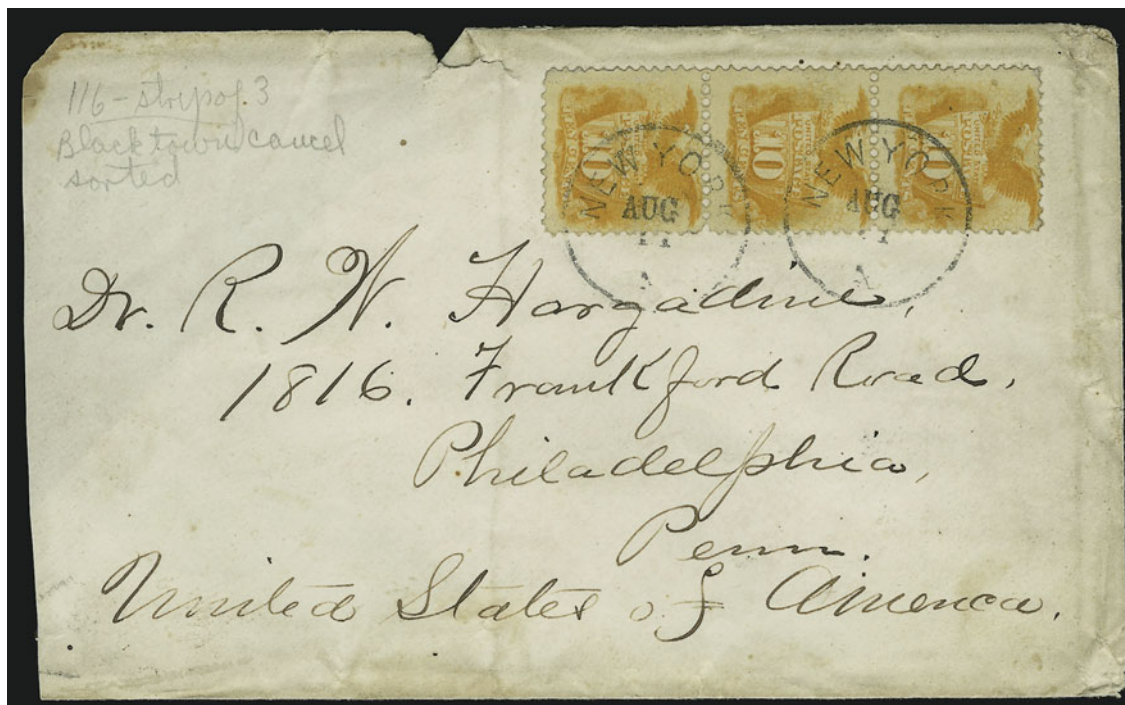 116 - strip of 3
Black town cancel
sorted
10
10
10
NEW YORK
AUG
NEW YORK
AUG
Dr. R. W. Hargadine,
1816. Frankford Road,
Philadelphia,
Penn.
United States of America.